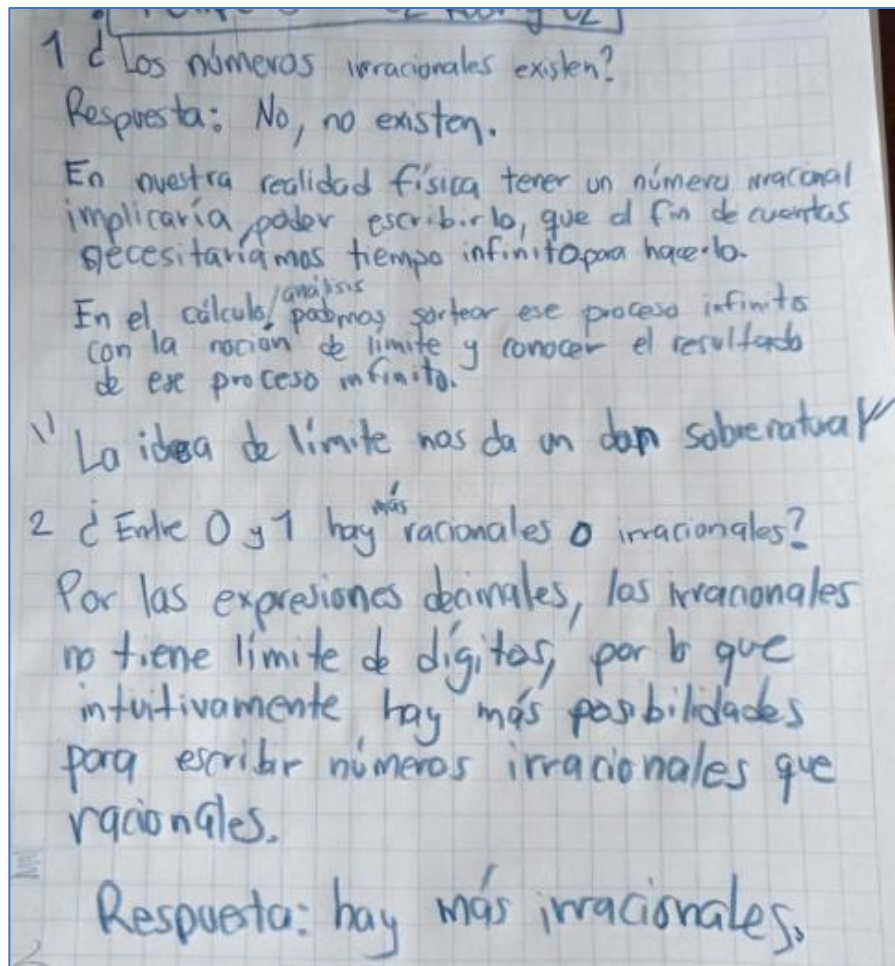 1 ¿Los números irracionales existen?
Respuesta: No, no existen.
En nuestra realidad física tener un número irracional
implicaría, poder escribirlo, que al fin de cuentas
necesitaríamos tiempo infinito para hacerlo.
En el cálculo/análisis podmos sortear ese proceso infinito
con la noción de límite y conocer el resultado
de ese proceso infinito.
"La idea de límite nos da un don sobrenatural"
2 ¿Entre 0 y 1 hay más racionales o irracionales?
Por las expresiones decimales, los irracionales
no tiene límite de dígitos, por lo que
intuitivamente hay más posibilidades
para escribir números irracionales que
racionales.
Respuesta: hay más irracionales.